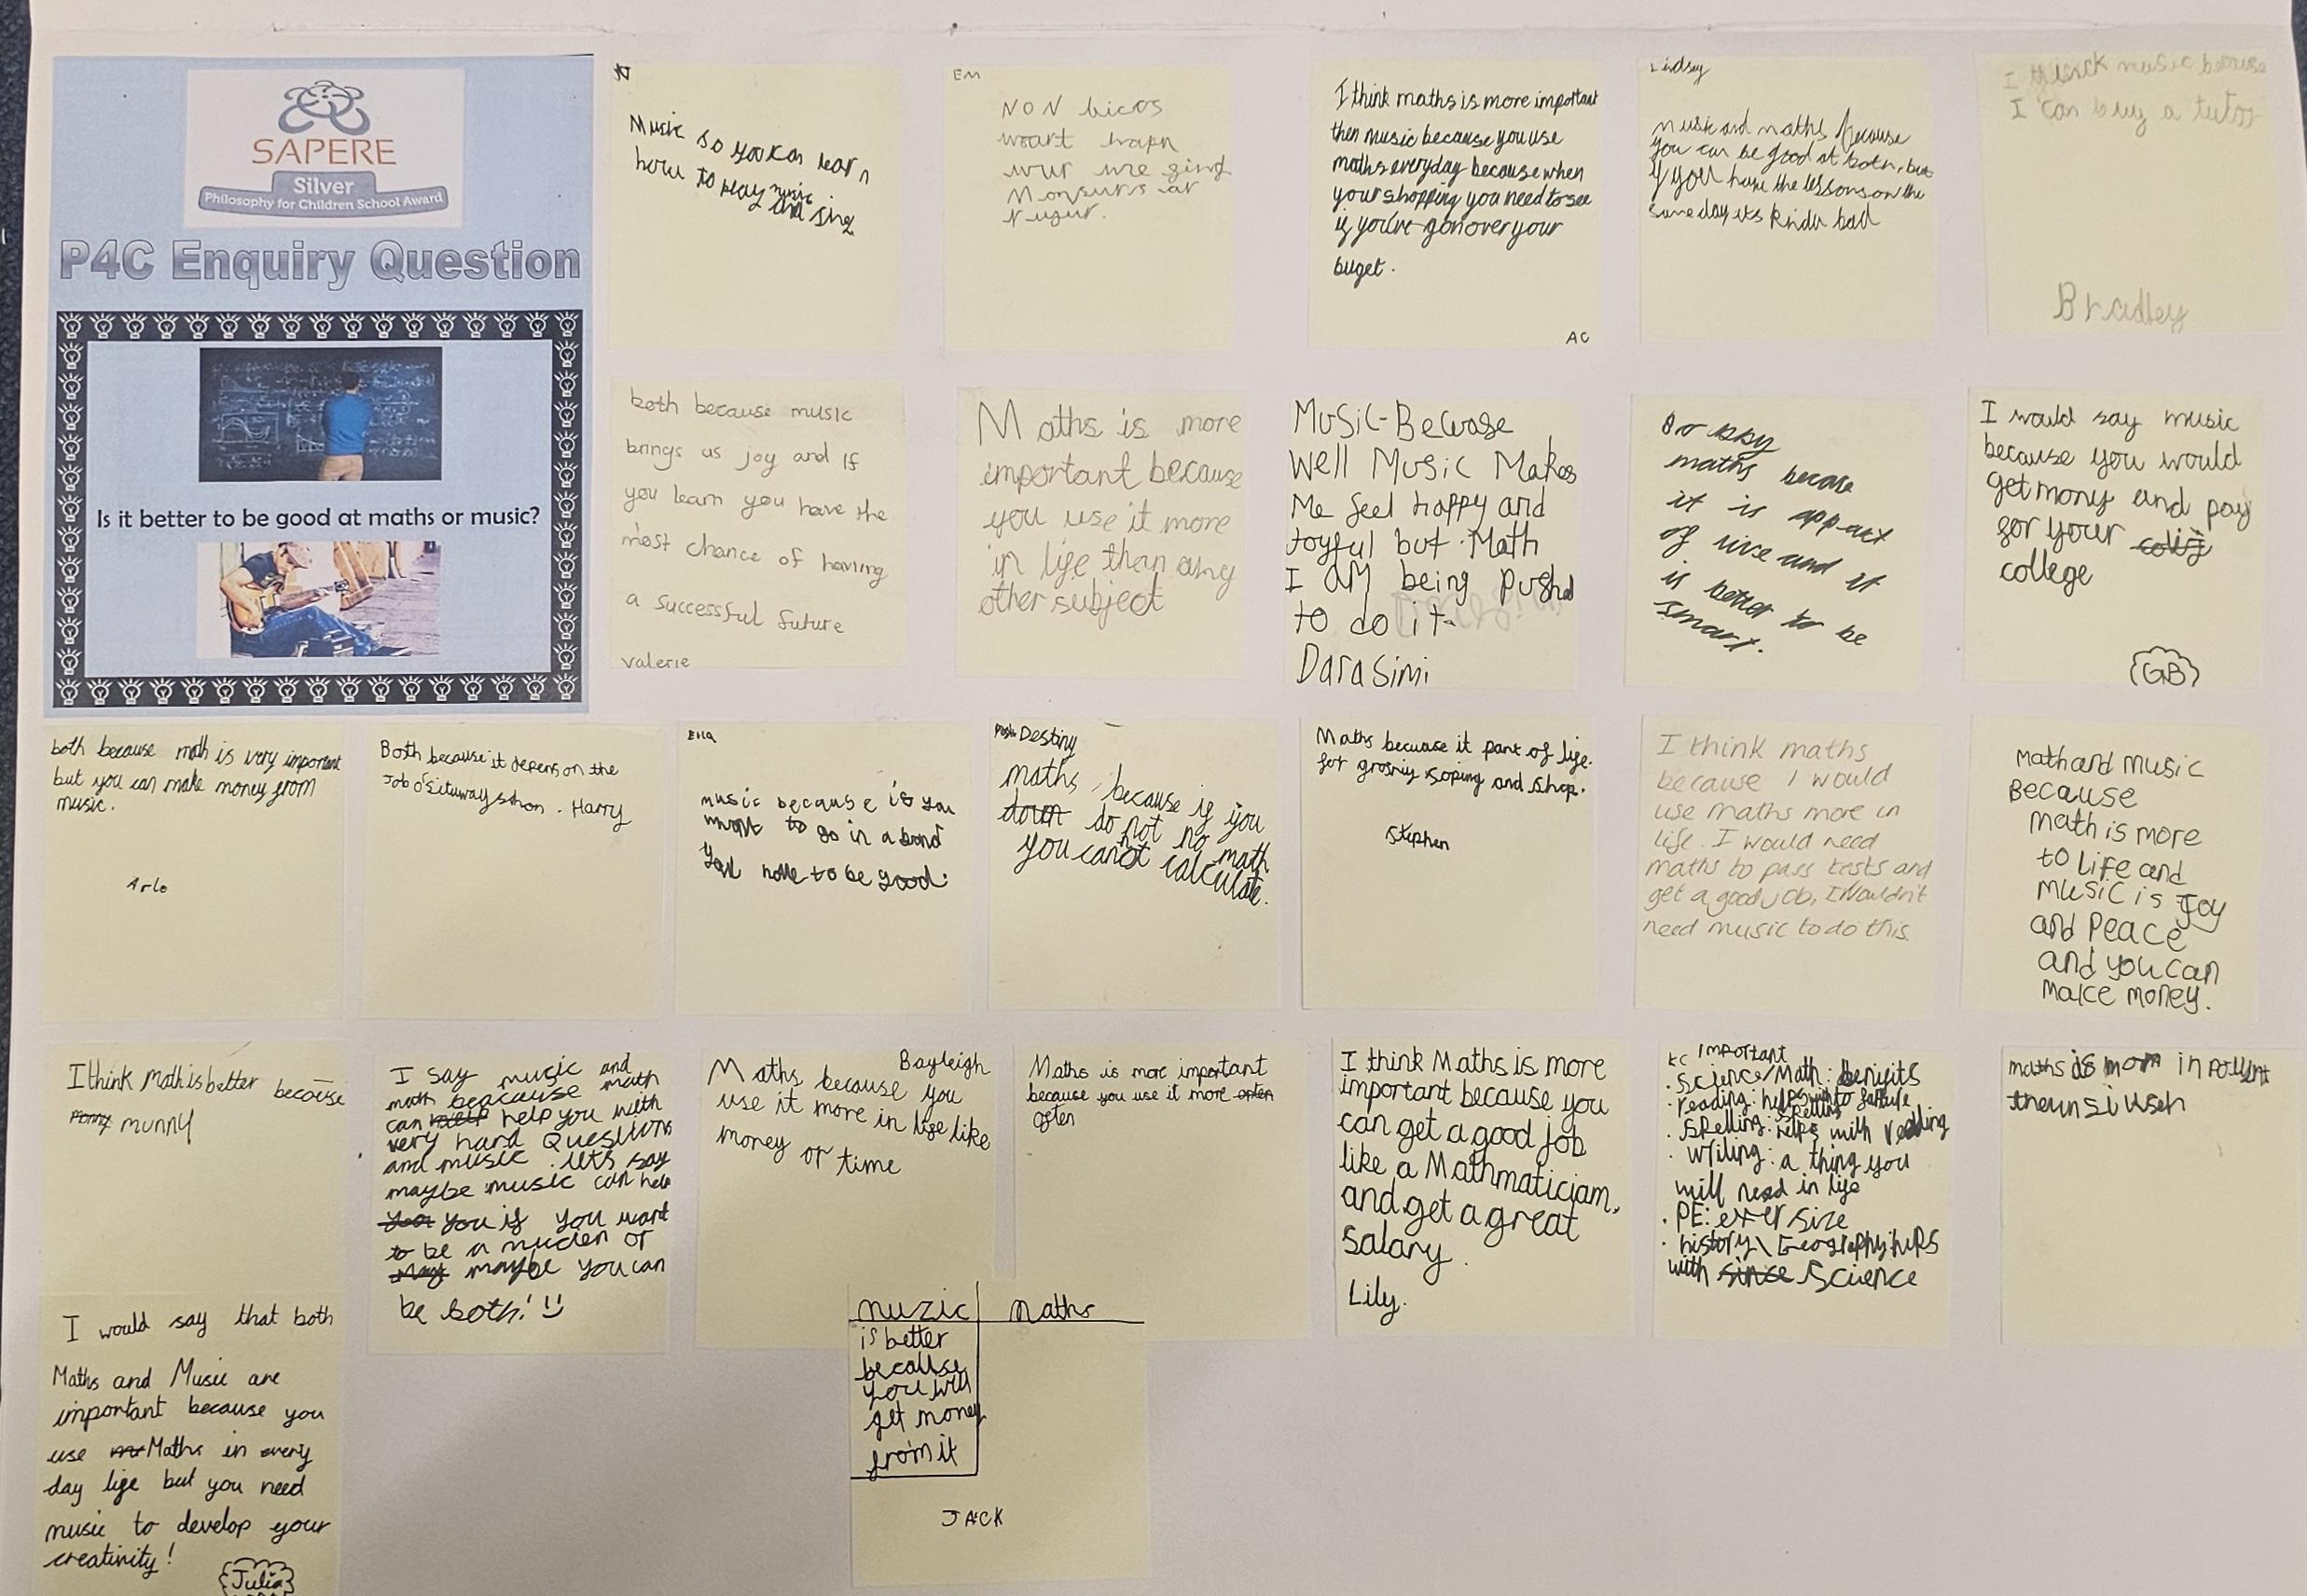 SAPERE
Silver
Philosophy for Children School Award
P4C Enquiry Question
Is it better to be good at maths or music?
Music so you can learn
how to play music
and sing
EM
NON bicos
woart hapn
wur we
Monsurs ar
I think maths is more important
then music because you use
maths everyday because when
your shopping you need to see
if you've gon over your
buget.
AC
Lindsey
music and maths because
you can be good at both, but
if you have the lessons on the
same day its kinda bad
I think music because
I can buy a tutor
Bradley
both because music
brings us joy and if
you learn you have the
most chance of having
a successful future
Valerie
Maths is more
important because
you use it more
in life than any
other subject
Music-Because
Well Music Makes
Me feel happy and
Joyful but Math
I am being pushd
to do it-
Darasimi
maths becase
it is appart
of live and it
is better to be
smart.
I would say music
because you would
get mony and pay
for your
college
GB
both because math is very important
but you can make money from
music.
Arlo
Both because it depens on the
Job o'situwayshon . Harry
Ella
music because if you
want to go in a band
You have to be good.
Destiny
maths, because if you
down do not no math
you cannot calculate.
Maths because it part of life.
for grosriy soping and shop.
Stephen
I think maths
because I would
use maths more in
life. I would need
maths to pass tests and
get a good job, I Wouldn't
need music to do this.
Math and music
Because
math is more
to Life and
music is Joy
and Peace
and you can
make money.
I think math is better because
munny
I say music and
math beacause math
can help help you with
very hard Questions
and music . lets say
maybe music can help
you if you want
to be a
maybe you can
be both!
Bayleigh
Maths because you
use it more in life like
money or time
Maths is more important
because you use it more often
often
I think Maths is more
important because you
can get a good job
like a Mathmaticiam,
and get a great
salary.
Lily.
KC Important
· Science/Math: benifits
· reading: helps
· Spelling: helps with reading
· writing: a thing you
will need in life
· PE: exersize
· history\ Geography: hlps
with since Science
maths is mor
I would say that both
Maths and Music are
important because you
use Maths in every
day life but you need
music to develop your
creativity!
Julia
muzic maths
is better
because
you will
get money
from it
JACK